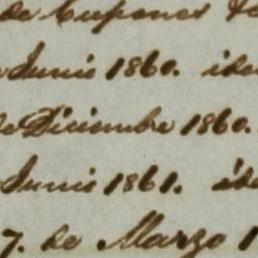 de Cupones
Junio 1860. id
de Diciembre 1860.
Junio 1861. id
7. de Marzo 1